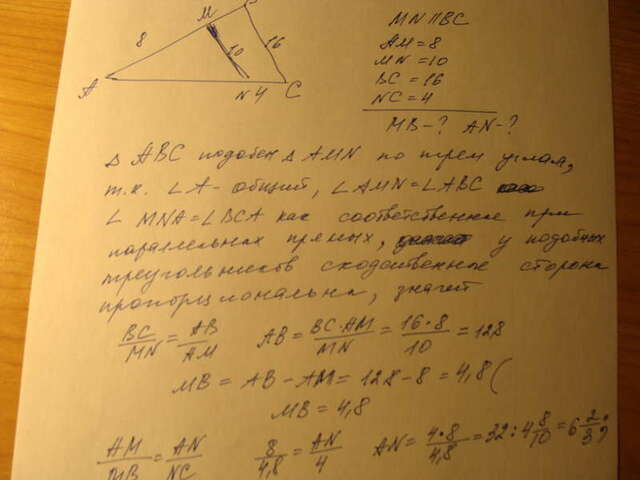 M
8
10
16
A
N 4
C
MN || BC
AM = 8
MN = 10
BC = 16
NC = 4
MB - ? AN - ?
△ ABC подобен △ AMN по трем углам,
т.к. ∠A - общий, ∠AMN = ∠ABC
∠ MNA = ∠BCA как соответственные при
параллельных прямых, у подобных
треугольников сходственные стороны
пропорциональны, значит
BC/MN = AB/AM AB = BC·AM/MN = 16·8/10 = 12,8
MB = AB - AM = 12,8 - 8 = 4,8 (
MB = 4,8
AM/MB = AN/NC 8/4,8 = AN/4 AN = 4*8/4,8 = 32 : 4 8/10 = 6 2/3